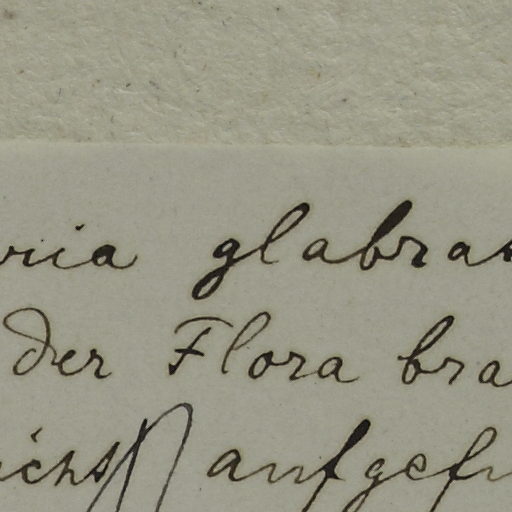 ria glabras
der Flora bra
ichst aufgefu